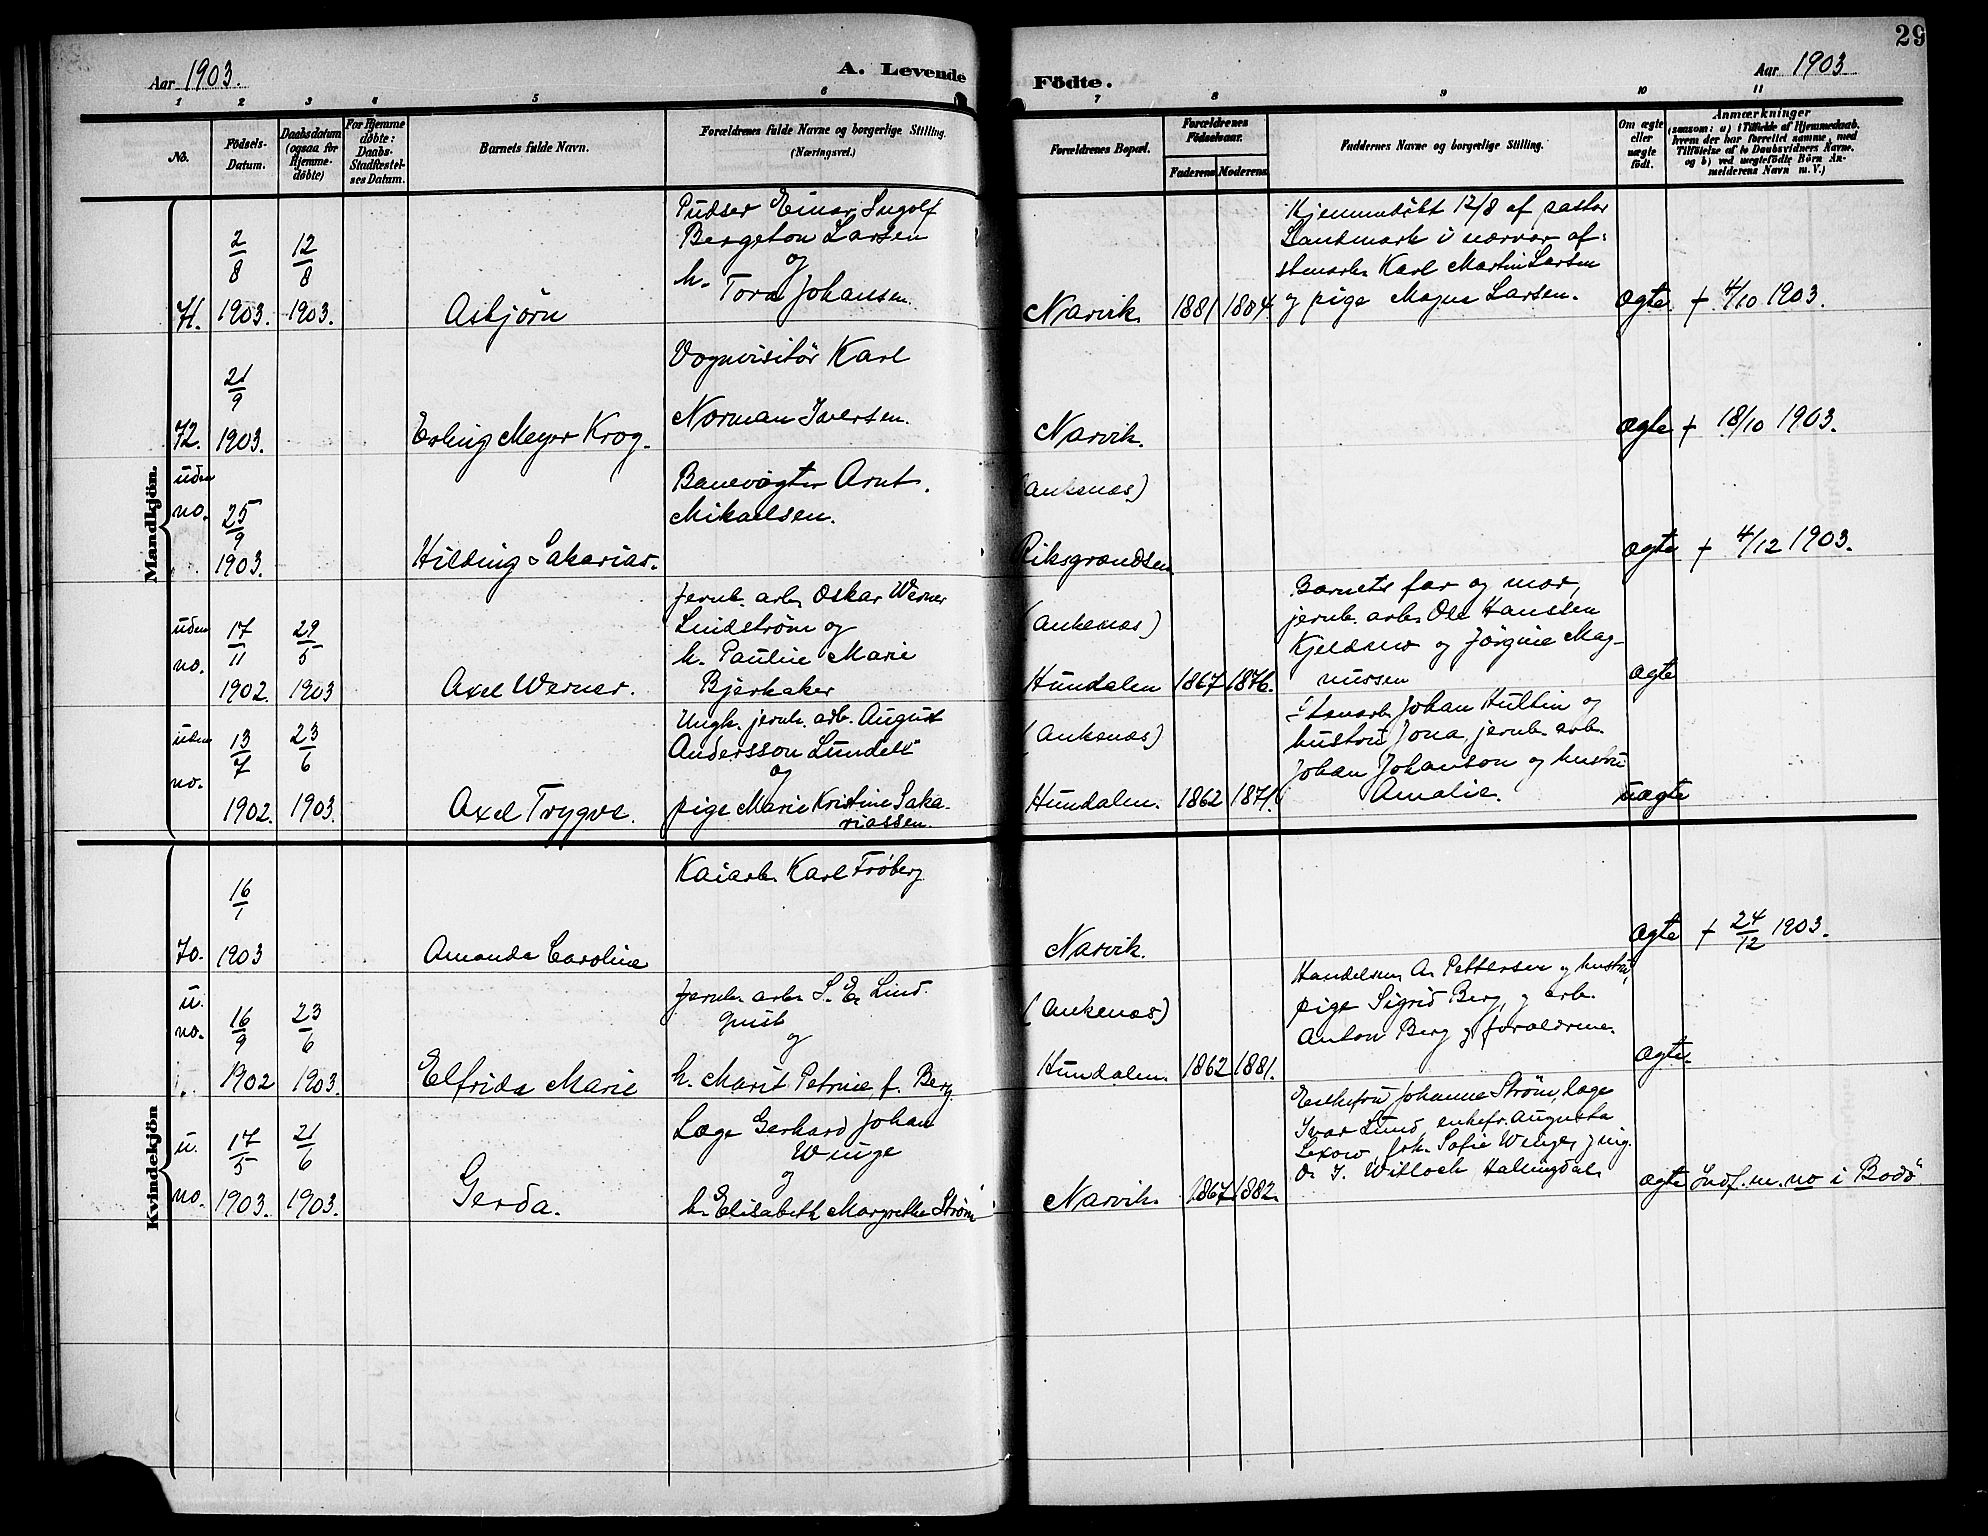 29
Aar 1903.
A. Levende
Födte.
Aar 1903
1 2 3 4 5 6 7 8 9 10 11
No.
Födsels-
Datum.
Daabsdatum
(ogsaa for
Hjemme-
döbte)
For Hjemme
döbte:
Daabs-
Stadfæstel-
ses Datum.
Barnets fulde Navn.
Forældrenes fulde Navne og borgerlige Stilling.
(Næringsvei.)
Forældrenes Bopæl.
Forældrenes
Födselsaar.
Faderens Moderens
Faddernes Navne og borgerlige Stilling.
Om ægte
eller
uægte
födt.
Anmærkninger
(saasom: a) i Tilfælde af Hjemmedaab,
hvem der har forrettet samme, med
Tilföielse af to Daabsvidners Navne,
og b) ved uægtefödte Börn An-
melderens Navn m. V.)
Mandkjön.
71.
2/8
1903.
12/8
1903.
Asbjörn
Pudser Einar Ingolf
Bergeton Larsen
og
h. Tora Johansen.
Narvik
1881
Hjemmedöbt 12/8 af pastor
Landmark i nærvær af:
stenarb. Karl Martin Larsen
og pige Magna Larsen.
ægte
+ 4/10 1903.
72.
21/9
1903.
Erling Meyer Krog.
Vognvisitör Karl
Norman Iversen.
Narvik.
ægte
+ 18/10 1903.
uden
no.
25/9
1903.
Hilding Sakarias.
Banevogter Arnt
Mikaelsen.
(Ankenes)
Riksgrændsen
ægte
+ 4/12 1903.
uden
no.
17/11
1902.
29/5
1903
Axel Werner.
jernb. arb. Oskar Werner
Lindström og
h. Pauline Marie
Bjerkaker
(Ankenes)
Hundalen
1867
1876.
Barnets far og mor,
jernb. arb. Ole Hanssen
Kjeldmo og Jörgine Mag-
nussen
ægte
uden
no.
13/7
1902.
23/6
1903.
Axel Trygve.
Ungk. jernb. arb. August
Andersson Lundell
og
pige Marie Kristine Saka-
riassen.
(Ankenes)
Hundalen.
1862
1871.
Stenarb. Johan Hultin og
hustru Jona, jernb. arb.
Johan Johanson og hustru
Amalie.
uægte
Kvindekjön
70.
16/1
1903
Amanda Caroline
Kaiarb. Karl Fröberg
Narvik.
ægte
+ 24/12 1903.
u.
no.
16/9
1902
23/6
1903.
Elfrida Marie
jernb. arb. S. E. Lind-
quist
og
h. Marit Petrine f. Berg
(Ankenes)
Hundalen.
1862
1881.
Handelsm. A. Pettersen og hustru,
pige Sigrid Berg, og arb.
Anton Berg og forældrene.
ægte.
u.
no.
17/5
1903.
21/6
1903.
Gerda.
Læge Gerhard Johan
Winge
og
h. Elisabeth Margrethe Ström
Narvik.
1867
1882.
Enkefru Johanne Ström, læge
Ivar Lund, enkefr. Augusta
Lexow, frk. Sofie Winge, og ing.
O. J. Willoch Hallingdal.
ægte
Indf. m. no i Bodö